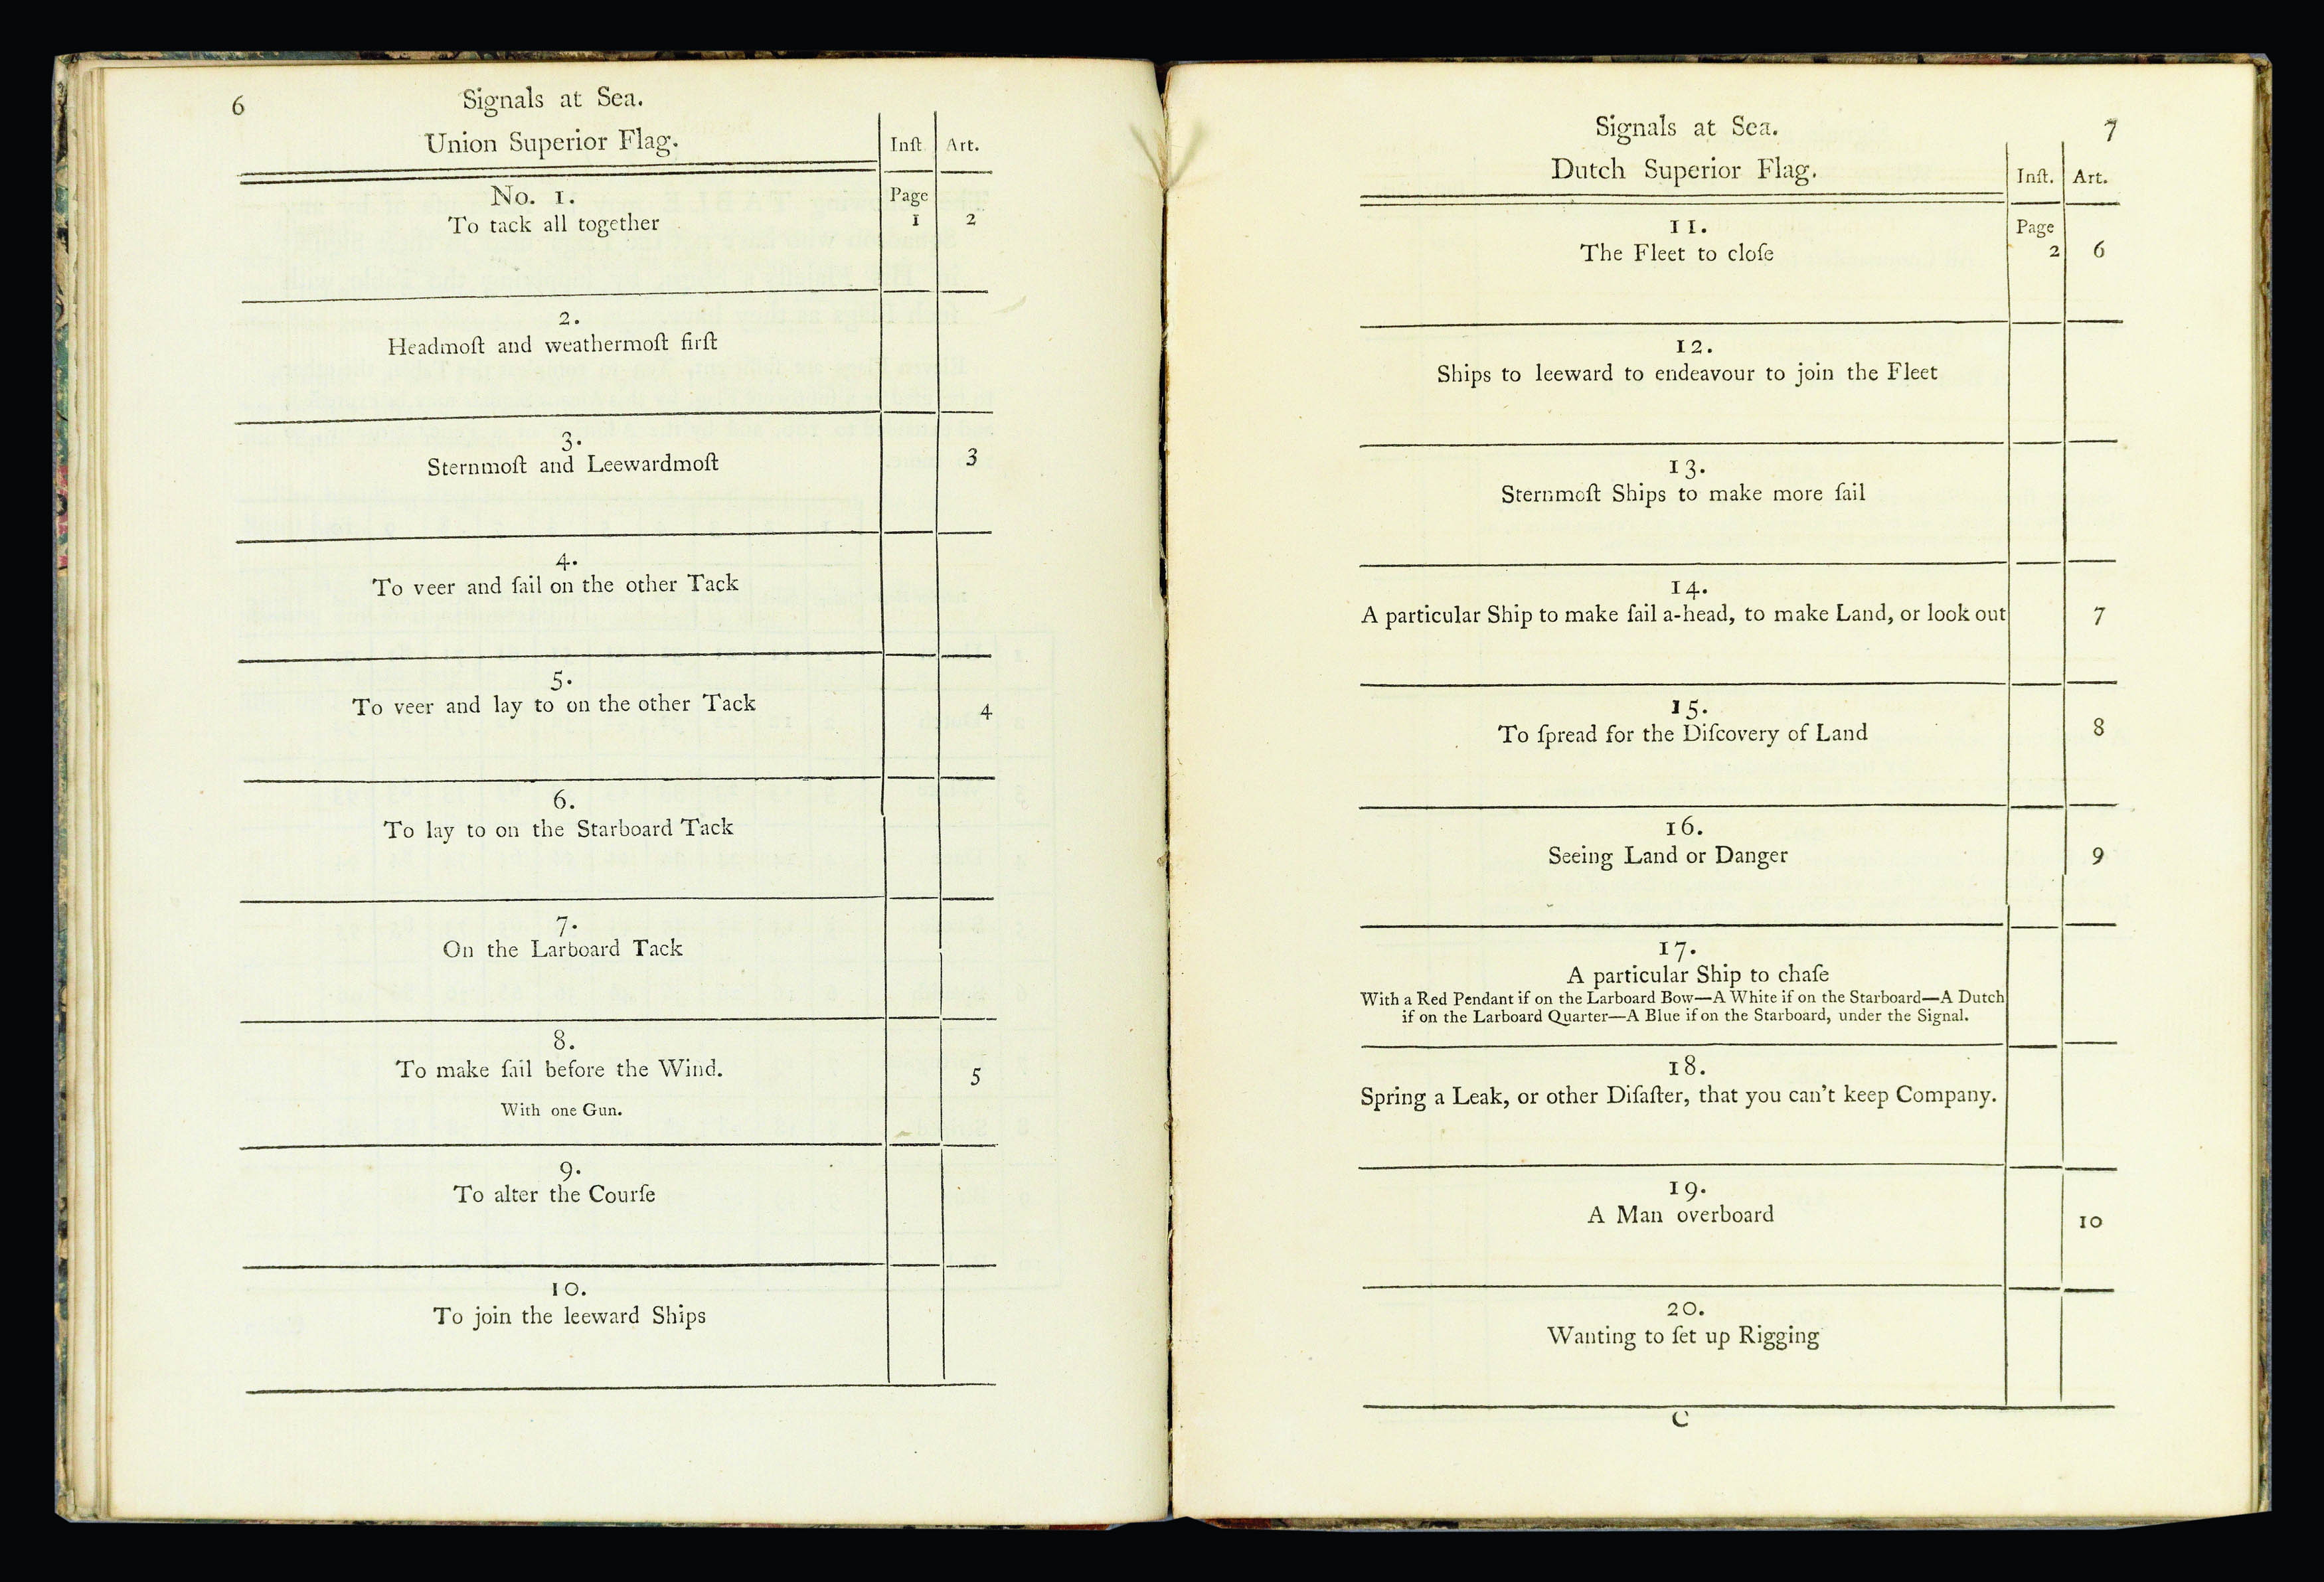 6
Signals at Sea.
Union Superior Flag.
Inſt. Art.
No. 1.
To tack all together
Page
1 2
2.
Headmoſt and weathermoſt firſt
3.
Sternmoſt and Leewardmoſt
3
4.
To veer and ſail on the other Tack
5.
To veer and lay to on the other Tack
4
6.
To lay to on the Starboard Tack
7.
On the Larboard Tack
8.
To make ſail before the Wind.
5
With one Gun.
9.
To alter the Courſe
10.
To join the leeward Ships
Signals at Sea.
7
Dutch Superior Flag.
Inſt. Art.
11.
The Fleet to cloſe
Page
2 6
12.
Ships to leeward to endeavour to join the Fleet
13.
Sternmoſt Ships to make more ſail
14.
A particular Ship to make ſail a-head, to make Land, or look out
7
15.
To ſpread for the Diſcovery of Land
8
16.
Seeing Land or Danger
9
17.
A particular Ship to chaſe
With a Red Pendant if on the Larboard Bow—A White if on the Starboard—A Dutch
if on the Larboard Quarter—A Blue if on the Starboard, under the Signal.
18.
Spring a Leak, or other Diſaſter, that you can't keep Company.
19.
A Man overboard
10
20.
Wanting to ſet up Rigging
C